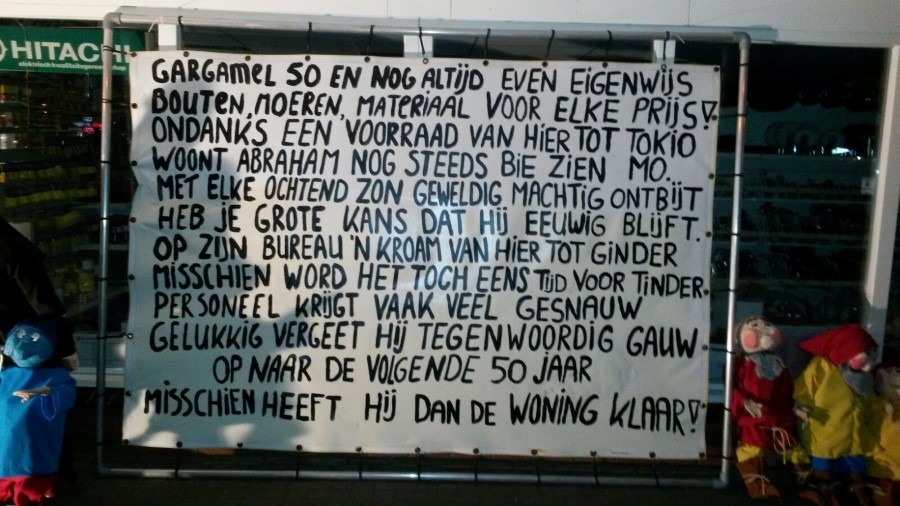 HITACHI
elektrisch kwaliteitsgereedschap
GARGAMEL 50 EN NOG ALTIJD EVEN EIGENWIJS
BOUTEN, MOEREN, MATERIAAL VOOR ELKE PRIJS!
ONDANKS EEN VOORRAAD VAN HIER TOT TOKIO
WOONT ABRAHAM NOG STEEDS BIE ZIEN MO.
MET ELKE OCHTEND ZON GEWELDIG MACHTIG ONTBIJT
HEB JE GROTE KANS DAT HIJ EEUWIG BLIJFT.
OP ZIJN BUREAU 'N KROAM VAN HIER TOT GINDER
MISSCHIEN WORD HET TOCH EENS TIJD VOOR TINDER.
PERSONEEL KRIJGT VAAK VEEL GESNAUW
GELUKKIG VERGEET HIJ TEGENWOORDIG GAUW
OP NAAR DE VOLGENDE 50 JAAR
MISSCHIEN HEEFT HIJ DAN DE WONING KLAAR!